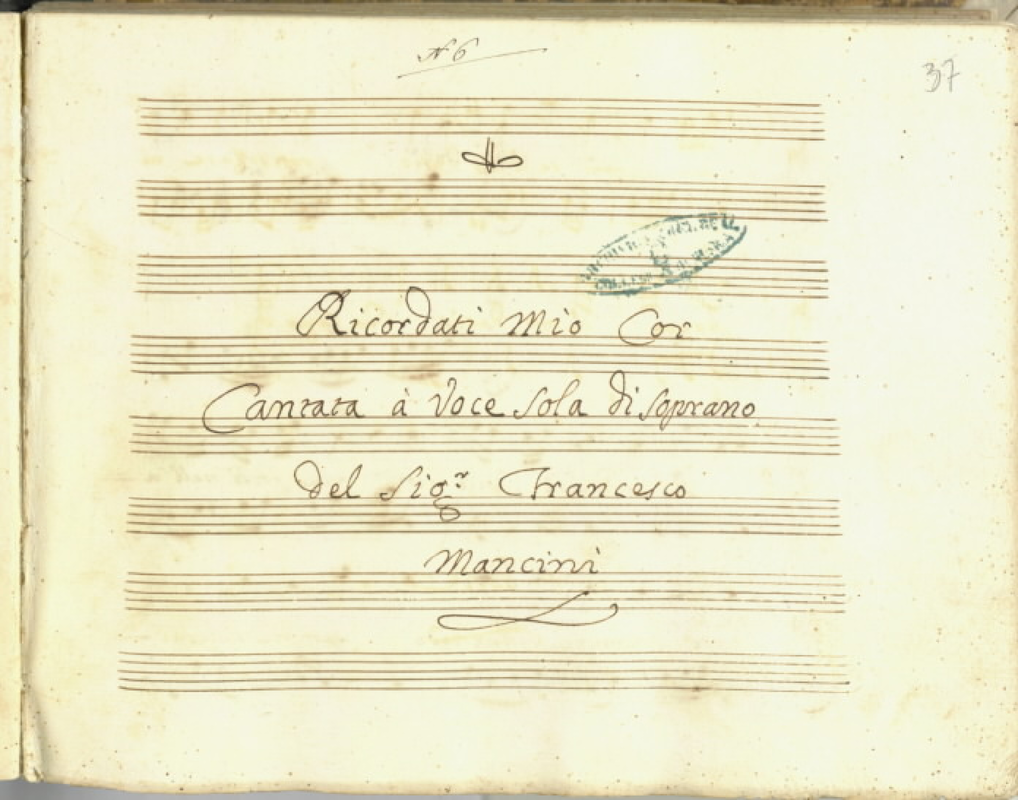 N 6
37
Ricordati Mio Cor
Cantata à Voce Sola di Soprano
del Sig.r Francesco
Mancini